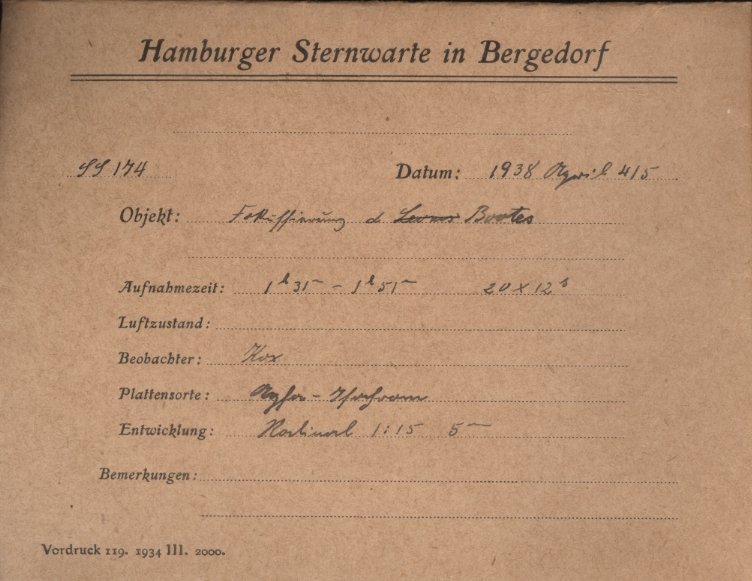 Hamburger Sternwarte in Bergedorf
SS 174 Datum: 1938 April 4/5
Objekt: Fokussierung α Leonis Bootes
Aufnahmezeit: 1h 31m – 1h 51m 20 x 12s
Luftzustand:
Beobachter: Kox
Plattensorte: Agfa – Isochrom
Entwicklung: Rodinal 1:15 5m
Bemerkungen:
Vordruck 119. 1934 III. 2000.